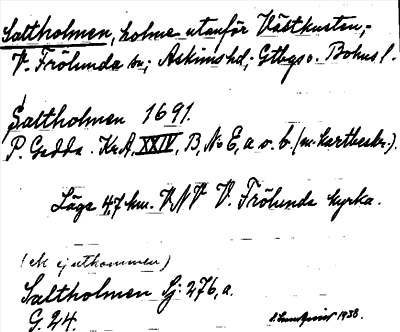 Saltholmen, holme utanför Västkusten,
V. Frölunda sn; Askims hd; Gtbgs o. Bohus l.
Saltholmen 1691.
P. Gedda. Kr.A. XXIV, B, No E, a o. b. (m. kartbeskr.).
Läge 4,7 km. VNV V. Frölunda kyrka.
(ek ej utkommen)
Saltholmen Sj: 276, a.
G. 24.
1938